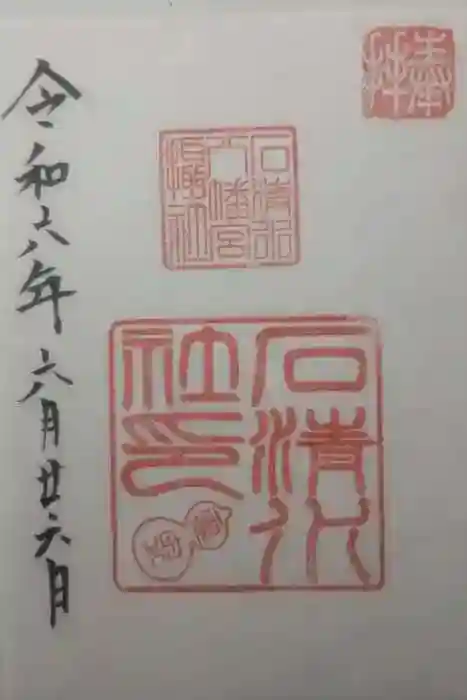 奉拝
石清水
八幡宮
攝社
石清水
社印
令和六年六月廿六日